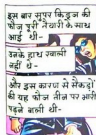 इस बार सुपर किड्ज की
फौज पूरी तैयारी के साथ
आई थी-
उनके हाथ खाली
नहीं थे-
और इस कारण से सैकड़ों
की यह फौज तीन पर भारी
पड़ने वाली थी-